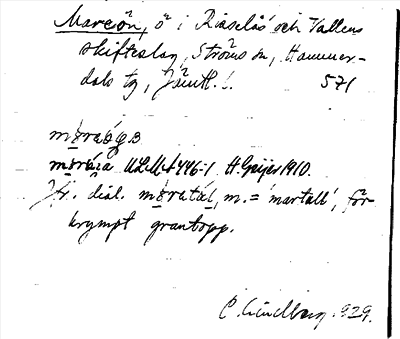 Mareön, ö i Risselås och Vallens
skifteslag, Ströms sn, Hammer-
dals tg, Jämtl. l. 571
måraöɡᴇɴ
måråra ULMA 446:1 H. Geijer 1910.
Jfr. dial. måratal, m. = 'martall', för-
krympt grantopp.
C. Lindberg. 1929.